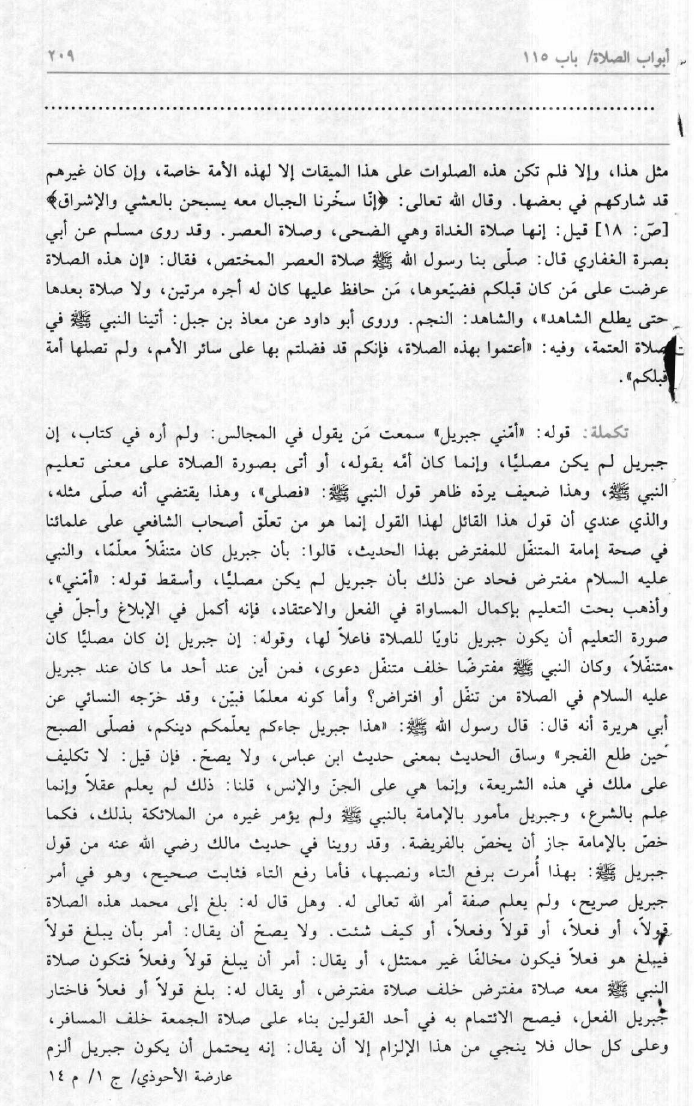 أبواب الصلاة/ باب ١١٥
٢٠٩
مثل هذا، وإلا فلم تكن هذه الصلوات على هذا الميقات إلا لهذه الأمة خاصة، وإن كان غيرهم
قد شاركهم في بعضها. وقال الله تعالى: ﴿إنّا سخّرنا الجبال معه يسبحن بالعشي والإشراق﴾
[صّ: ١٨] قيل: إنها صلاة الغداة وهي الضحى، وصلاة العصر. وقد روى مسلم عن أبي
بصرة الغفاري قال: صلّى بنا رسول الله ﷺ صلاة العصر المختص، فقال: «إن هذه الصلاة
عرضت على مَن كان قبلكم فضيّعوها، مَن حافظ عليها كان له أجره مرتين، ولا صلاة بعدها
حتى يطلع الشاهد»، والشاهد: النجم. وروى أبو داود عن معاذ بن جبل: أتينا النبي ﷺ في
صلاة العتمة، وفيه: «أعتموا بهذه الصلاة، فإنكم قد فضلتم بها على سائر الأمم، ولم تصلها أمة
قبلكم».
تكملة: قوله: «أمّني جبريل» سمعت مَن يقول في المجالس: ولم أره في كتاب، إن
جبريل لم يكن مصليًّا، وإنما كان أمّه بقوله، أو أتى بصورة الصلاة على معنى تعليم
النبي ﷺ، وهذا ضعيف يردّه ظاهر قول النبي ﷺ: «فصلى»، وهذا يقتضي أنه صلّى مثله،
والذي عندي أن قول هذا القائل لهذا القول إنما هو من تعلّق أصحاب الشافعي على علمائنا
في صحة إمامة المتنفّل للمفترض بهذا الحديث، قالوا: بأن جبريل كان متنفّلاً معلّمًا، والنبي
عليه السلام مفترض فحاد عن ذلك بأن جبريل لم يكن مصليًّا، وأسقط قوله: «أمّني»،
وأذهب بحت التعليم بإكمال المساواة في الفعل والاعتقاد، فإنه أكمل في الإبلاغ وأجلّ في
صورة التعليم أن يكون جبريل ناويًا للصلاة فاعلاً لها، وقوله: إن جبريل إن كان مصليًّا كان
متنفّلاً، وكان النبي ﷺ مفترضًا خلف متنفّل دعوى، فمن أين عند أحد ما كان عند جبريل
عليه السلام في الصلاة من تنفّل أو افتراض؟ وأما كونه معلمًا فبيّن، وقد خرّجه النسائي عن
أبي هريرة أنه قال: قال رسول الله ﷺ: «هذا جبريل جاءكم يعلّمكم دينكم، فصلّى الصبح
حين طلع الفجر» وساق الحديث بمعنى حديث ابن عباس، ولا يصحّ. فإن قيل: لا تكليف
على ملك في هذه الشريعة، وإنما هي على الجنّ والإنس، قلنا: ذلك لم يعلم عقلاً وإنما
عِلم بالشرع، وجبريل مأمور بالإمامة بالنبي ﷺ ولم يؤمر غيره من الملائكة بذلك، فكما
خصّ بالإمامة جاز أن يخصّ بالفريضة. وقد روينا في حديث مالك رضي الله عنه من قول
جبريل ﷺ: بهذا أُمرت برفع التاء ونصبها، فأما رفع التاء فثابت صحيح، وهو في أمر
جبريل صريح، ولم يعلم صفة أمر الله تعالى له. وهل قال له: بلغ إلى محمد هذه الصلاة
قولاً، أو فعلاً، أو قولاً وفعلاً، أو كيف شئت. ولا يصحّ أن يقال: أمر بأن يبلغ قولاً
فيبلغ هو فعلاً فيكون مخالفًا غير ممتثل، أو يقال: أمر أن يبلغ قولاً وفعلاً فتكون صلاة
النبي ﷺ معه صلاة مفترض خلف صلاة مفترض، أو يقال له: بلغ قولاً أو فعلاً فاختار
جبريل الفعل، فيصح الائتمام به في أحد القولين بناء على صلاة الجمعة خلف المسافر،
وعلى كل حال فلا ينجي من هذا الإلزام إلا أن يقال: إنه يحتمل أن يكون جبريل ألزم
عارضة الأحوذي/ ج ١/ م ١٤